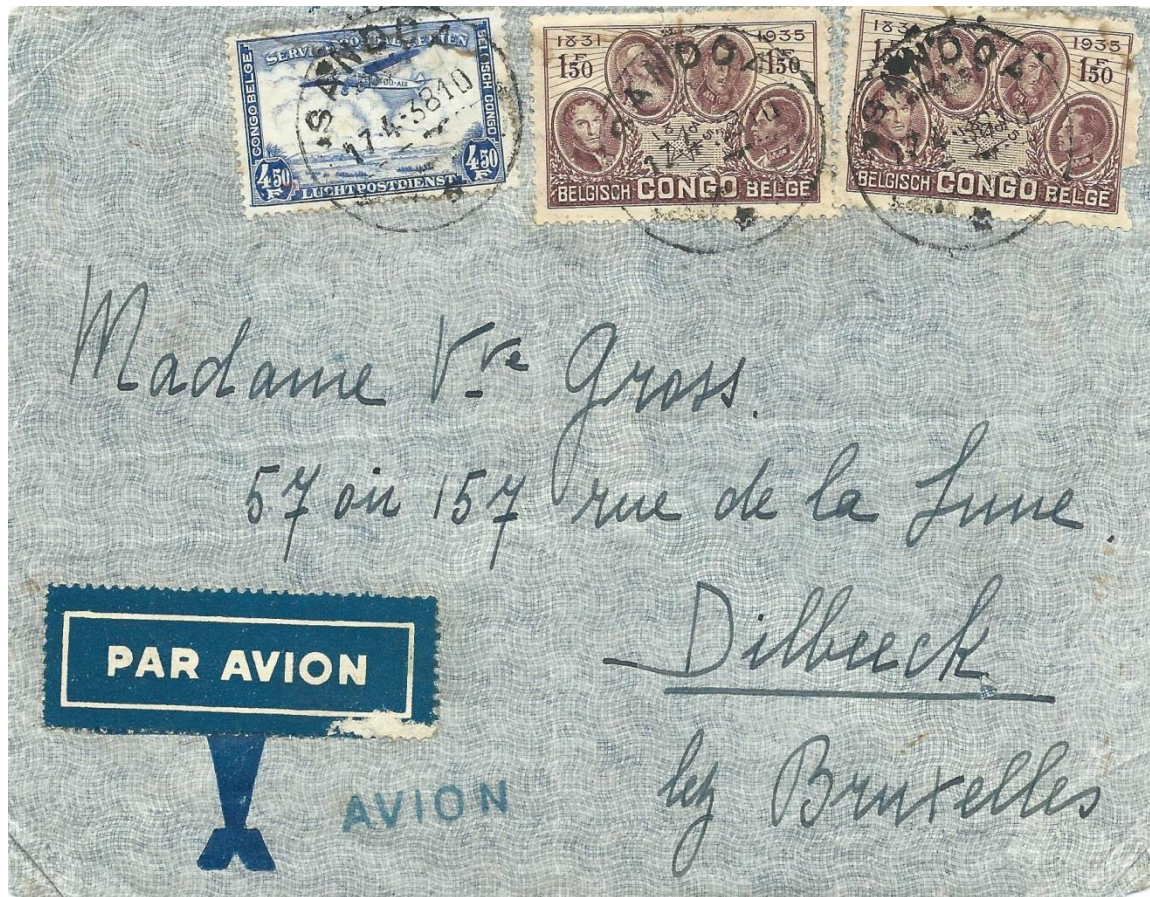 SANDOA
17-4-3810
CONGO BELGE
BELGISCH CONGO
4F50
4F50
LUCHTPOSTDIENST
1831 1935
1F50 1F50
BELGISCH CONGO BELGE
SANDOA
1831 1935
1F50
BELGISCH CONGO BELGE
SANDOA
Madame Vve Gross.
57 ou 157 rue de la Lune.
Dilbeeck
lez Bruxelles
PAR AVION
AVION